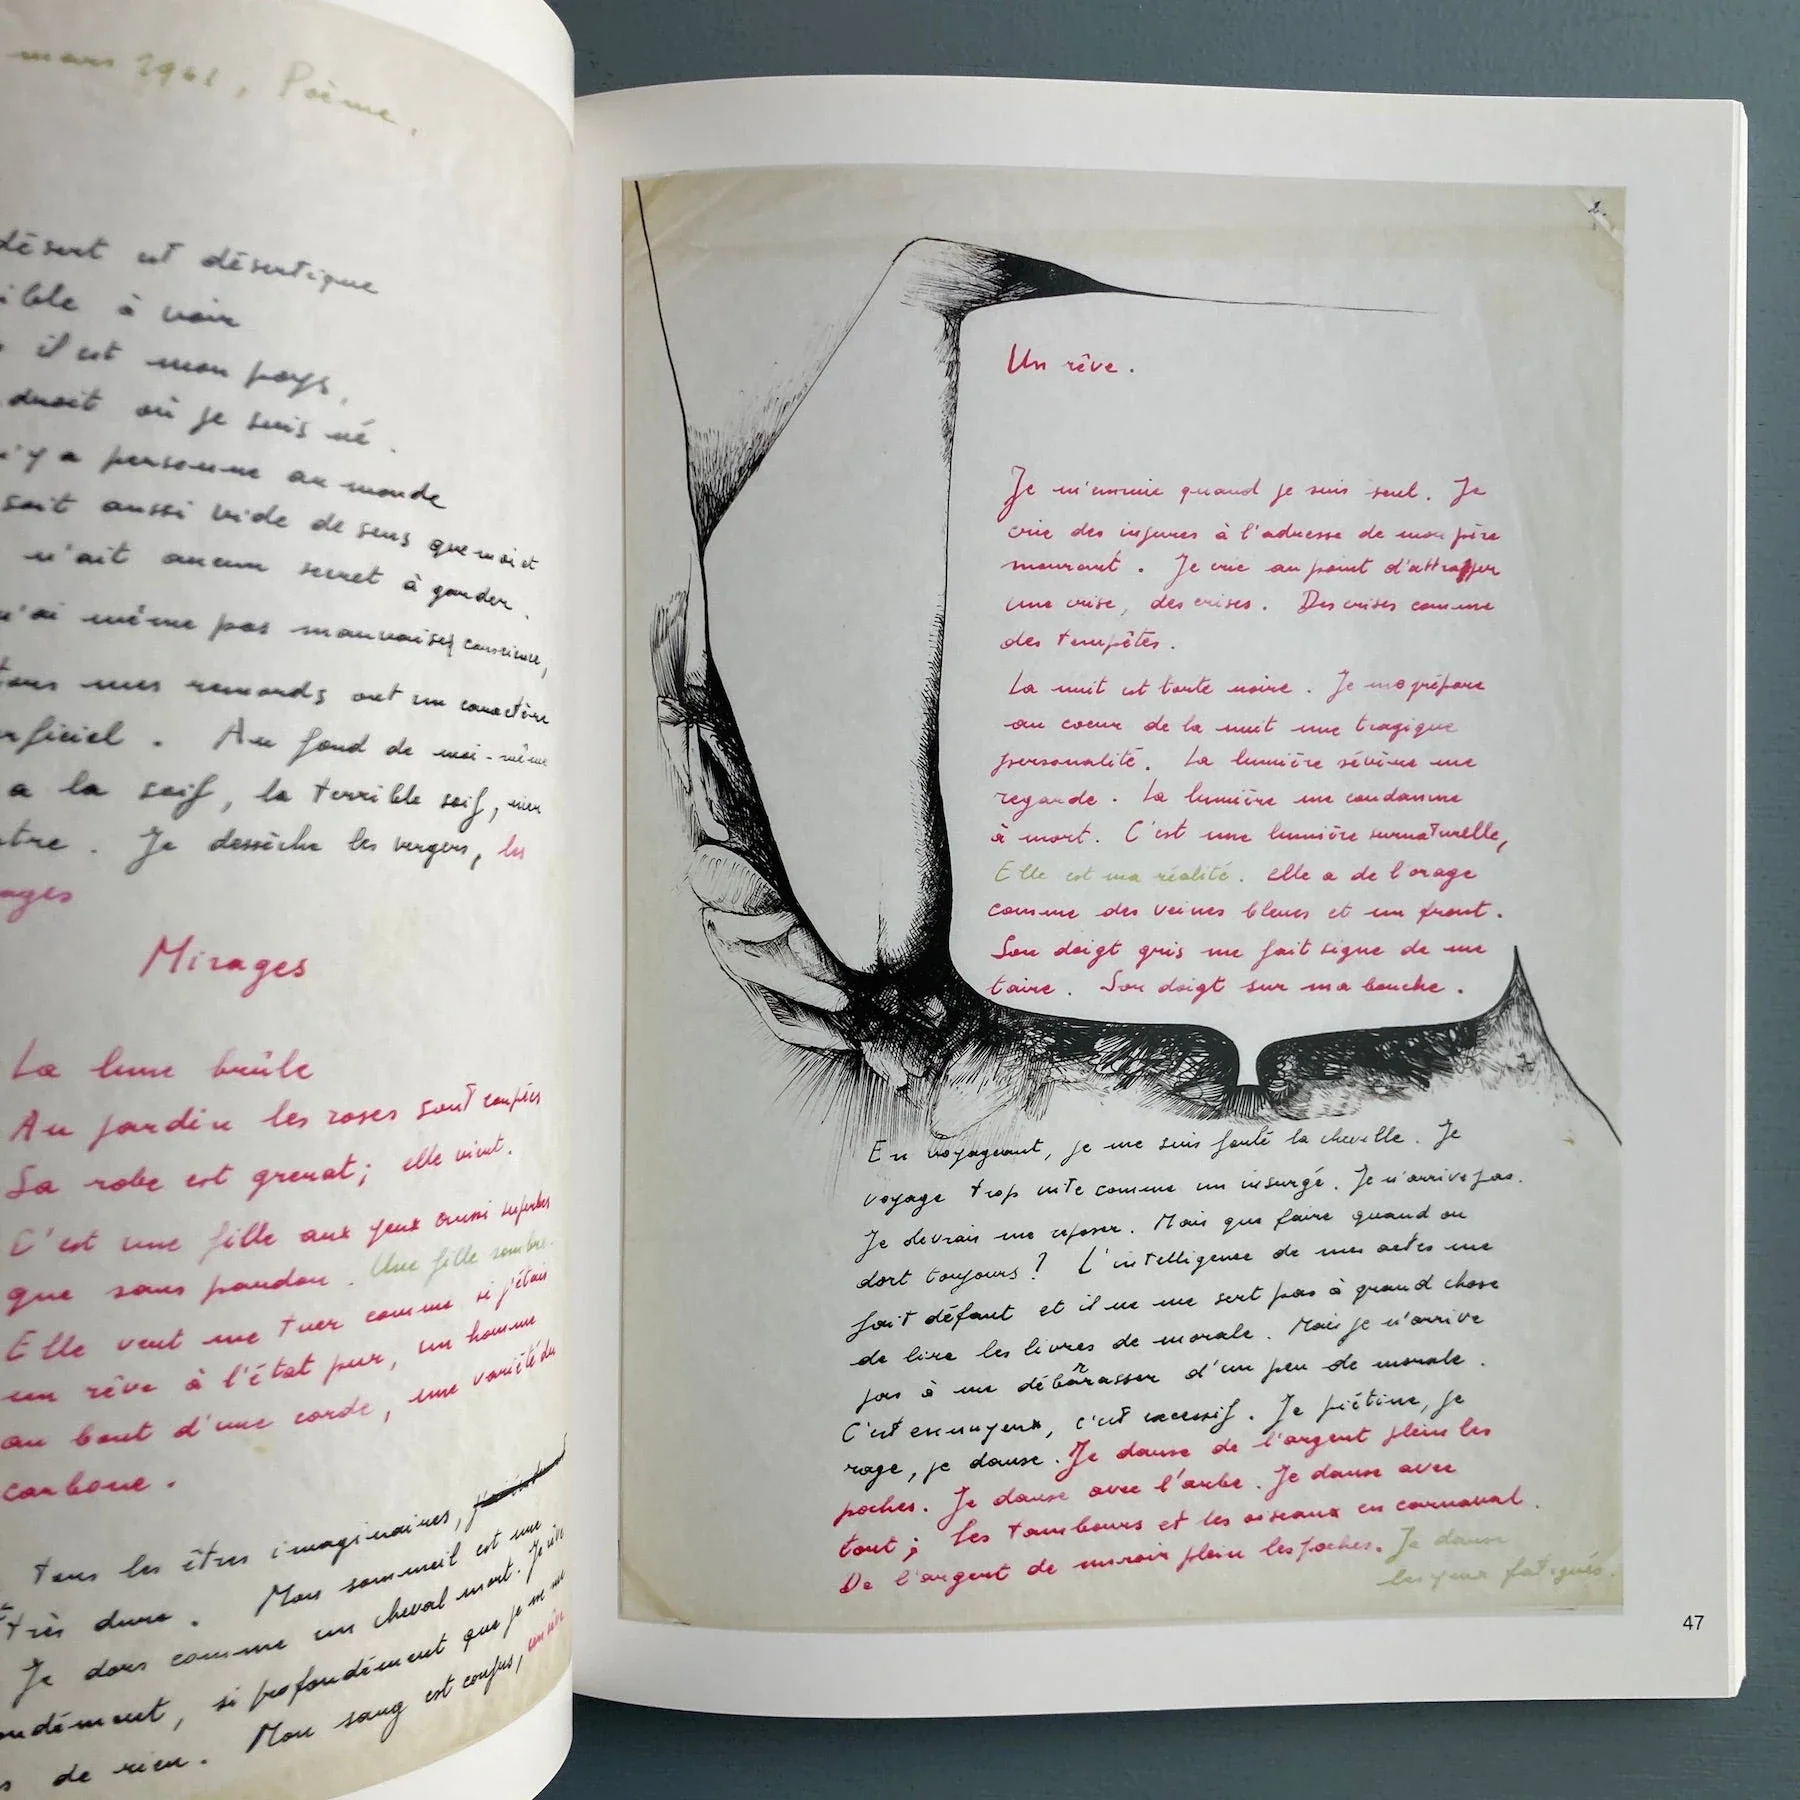 mars 1961, Poème.
désert est désertique
ible à voir
il est mon pays,
droit où je suis né.
n'y a personne au monde
soit aussi vide de sens que moi et
n'ait aucun secret à garder.
n'ai même pas mauvaises conscience,
tous mes remords ont un caractère
rficiel. Au fond de moi-même
a la soif, la terrible soif, mon
tre. Je dessèche les vergers, les
ages
Mirages
La lune brûle
Au jardin les roses sont coupées
Sa robe est grenat; elle vient.
C'est une fille aux yeux aussi superbes
que sans pardon. Une fille sombre.
Elle veut me tuer comme si j'étais
un rêve à l'état pur, un homme
au bout d'une corde, une variété du
carbone.
tous les êtres imaginaires,
très dure. Mon sommeil est une
Je dors comme un cheval mort. Je rêve
ondément, si profondément que je ne me
de rien. Mon sang est confus, un rêve
2.
Un rêve.
Je m'ennuie quand je suis seul. Je
crie des injures à l'adresse de mon père
mourant. Je crie au point d'attrapper
une crise, des crises. Des crises comme
des tempêtes.
La nuit est toute noire. Je me prépare
au coeur de la nuit une tragique
personalité. La lumière sévère me
regarde. La lumière me condamne
à mort. C'est une lumière surnaturelle,
Elle est ma réalité. elle a de l'orage
comme des veines bleues et un front.
Son doigt gris me fait signe de me
taire. Son doigt sur ma bouche.
En voyageant, je me suis foulé la cheville. Je
voyage trop vite comme un insurgé. Je n'arrive pas.
Je devrais me reposer. Mais que faire quand on
dort toujours? L'intelligence de mes actes me
fait défaut et il ne me sert pas à grand chose
de lire les livres de morale. Mais je n'arrive
pas à me débarrasser d'un peu de morale.
C'est ennuyeux, c'est excessif. Je piétine, je
rage, je danse. Je danse de l'argent plein les
poches. Je danse avec l'arbe. Je danse avec
tout; les tambours et les oiseaux en carnaval.
De l'argent de miroir plein les poches. Je danse
les yeux fatigués.
47